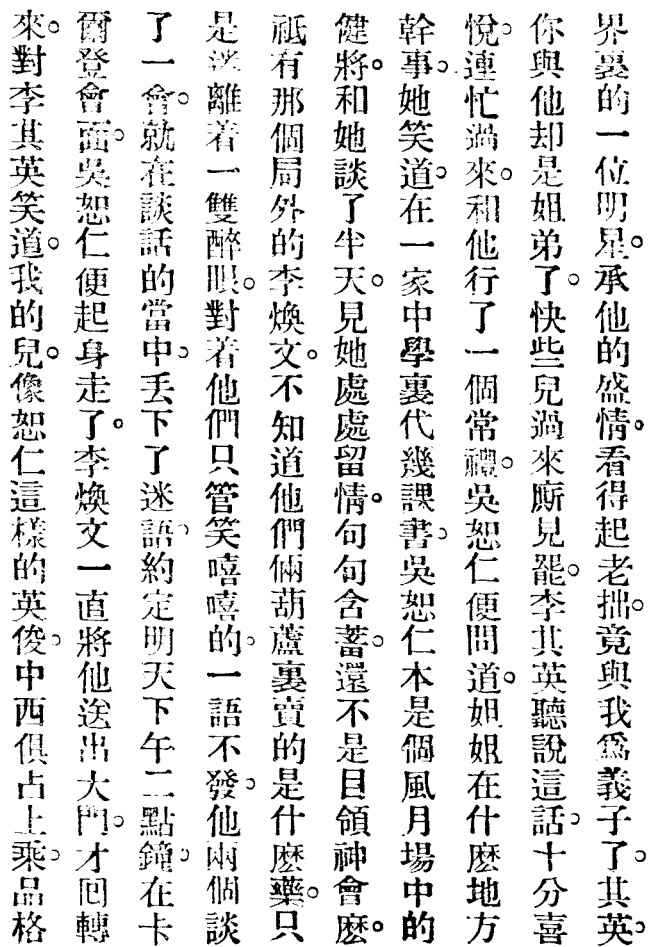 界裏的一位明星。承他的盛情。看得起老拙。竟與我爲義子了。其英。
你與他却是姐弟了。快些兒過來廝見罷。李其英聽說這話。十分喜
悅。連忙過來。和他行了一個常禮。吳恕仁便問道。姐姐在什麽地方
幹事。她笑道。在一家中學裏代幾課書。吳恕仁本是個風月場中的
健將。和她談了半天。見她處處留情。句句含蓄。還不是目領神會麽。
祗有那個局外的李煥文。不知道他們倆葫蘆裏賣的是什麽藥。只
是迷離着一雙醉眼。對着他們只管笑嘻嘻的。一語不發。他兩個談
了一會。就在談話的當中。丟下了迷語。約定明天下午二點鐘。在卡
爾登會面。吳恕仁便起身走了。李煥文一直將他送出大門。才回轉
來。對李其英笑道。我的兒。像恕仁這樣的英俊。中西俱占上乘。品格